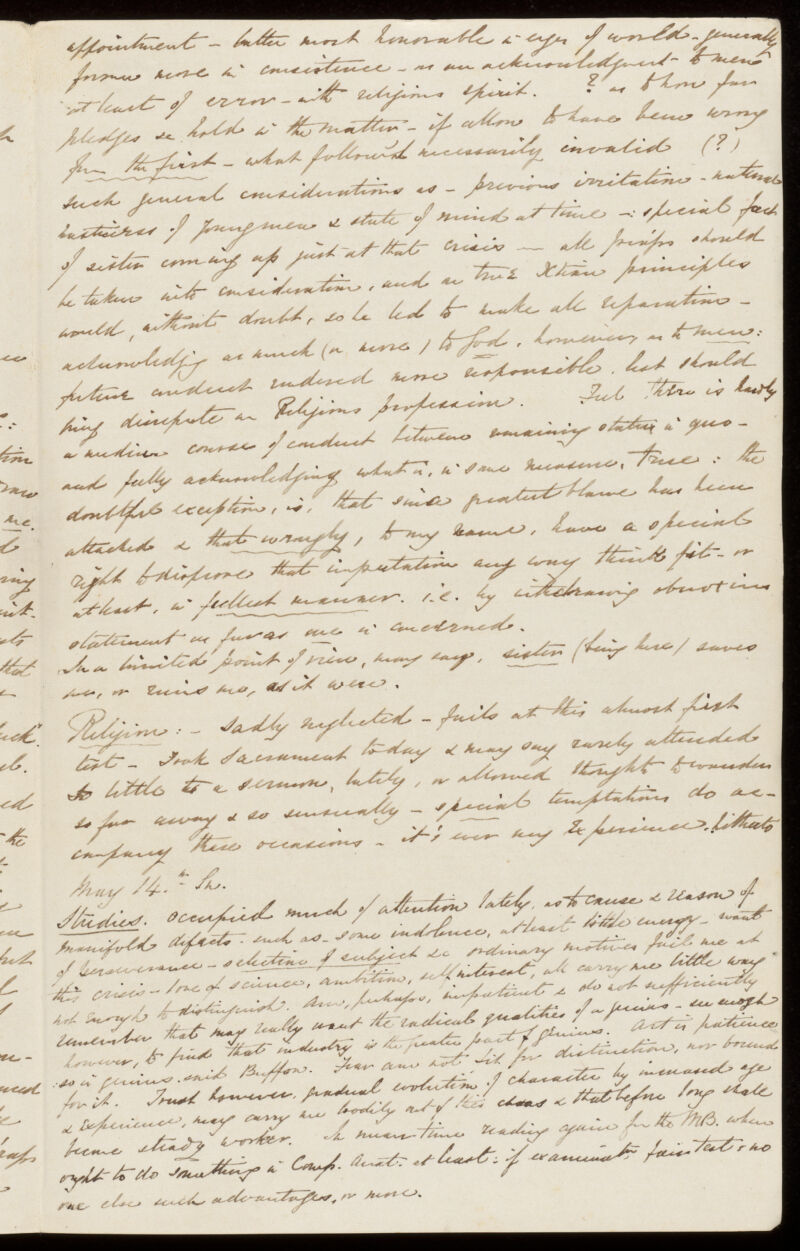 appointment – latter most honorable in eyes of world – generally
former more in consistence – as an acknowledgment – to men
at least of error – with religious spirit. ? as to how far
pledges &c hold in the matter – if allow to have been wrong
from the first – what follow'd necessarily invalid (?)
such general considerations as – previous irritation – natural
hastiness of young men & state of mind at time – : special fact
of sister coming up just at that crisis – all p'raps should
be taken into consideration, and a true Xtian principles
would, without doubt, so be led to make all reparation –
acknowledg'g as much (or more) to God, however, as to men:
future conduct rendered more responsible, lest should
bring disrepute on Religious profession. Feel there is hardly
a medium course of conduct between remaining statu in quo –
and fully acknowledging what is, in some measure, true: the
doubtful exception, is, that since greatest blame has been
attached & that wrongly, to my name, have a special
right to disprove that imputation any way think fit – or
at least, in fullest manner. i.e. by withdrawing obnoxious
statement as far as me is concerned.
In a limited point of view, may say, sister (being here) saves
me, or ruins me, as it were.
Religion: – Sadly neglected – fails at this almost first
test – Took Sacrament today & may say rarely attended
so little to a sermon, lately, or allowed thought to wander
so far away & so sensually – special temptations do ac-
company these occasions – it's ever my Experience, hitherto
May 14.th Su.
Studies. occupied much of attention lately, as to cause & reason of
manifold defects. such as – some indolence, at least little energy – want
of perseverance – selection of subject &c ordinary motives fail me at
this crisis – love of science, ambition, self interest, all carry me little way
not enough to distinguish. Am, perhaps, impatient & do not sufficiently
remember that may really want the radical qualities of a genius – see enough
however, to find that industry is the greater part of genius. Art is patience
so is genius. said Buffon. Fear am not fit for distinction, nor bound
for it. Trust however, gradual evolution of character by increased age
& experience, may carry me bodily out of this chaos & that before long shall
become steady worker. In mean time reading again for the MB. where
ought to do something in Comp. Anat. at least: if examinat.n fair test & no
one else such advantages, or more.